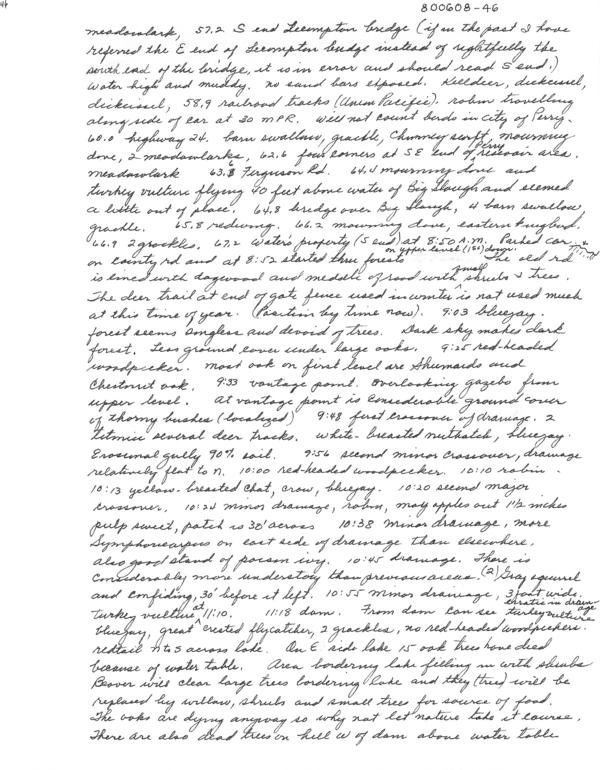 46
800608-46
meadowlark, 57.2 S end Lecompton bridge (if in the past I have
referred the E end of Lecompton bridge instead of rightfully the
south end of the bridge, it is in error and should read S end.)
Water high and muddy. no sand bars exposed. Killdeer, dickcissel,
dickcissel, 58.9 railroad tracks (Union Pacific). robin travelling
along side of car at 30 MPR. Will not count birds in city of Perry.
60.0 highway 24. barn swallow, grackle, Chimney swift, mourning
dove, 2 meadowlarks, 62.6 four corners at SE end of Perry reservoir area.
meadowlark 63.8 Ferguson Rd. 64.4 mourning dove and
turkey vulture flying 40 feet above water of Big Slough and seemed
a little out of place. 64.8 bridge over Big Slough, 4 barn swallow,
grackle. 65.8 redwing. 66.2 mourning dove, eastern kingbird.
66.9 2 grackles. 67.2 Water's property (S end) at 8:50 A.M. Parked car
on county rd and at 8:52 started thru forests on upper level (1st) The old rd
is lined with dogwood and middle of road with small shrubs & trees.
The deer trail at end of gate fence used in winter is not used much
at this time of year. (Position by time now). 9:03 bluejay.
forest seems songless and devoid of trees. Dark sky makes dark
forest. Less ground cover under large oaks. 9:25 red-headed
woodpecker. most oak on first level are Shumards and
Chestnut oak. 9:33 vantage point. Overlooking gazebo from
upper level. At vantage point is considerable ground cover
of thorny bushes (localized) 9:48 first crossover of drainage. 2
titmice several deer tracks. White-breasted nuthatch, bluejay.
Erosional gully 90% soil. 9:56 second minor crossover, drainage
relatively flat to N. 10:00 red-headed woodpecker. 10:10 robin.
10:13 yellow-breasted chat, crow, bluejay. 10:20 second major
crossover. 10:24 minor drainage, robin, may apples out 1½ inches
pulp sweet, patch is 30' across 10:38 minor drainage, more
Symphoricarpus on east side of drainage than elsewhere.
also good stand of poison ivy. 10:45 drainage. There is
considerably more understory than previous areas. (2) Gray squirrel
and confiding, 30' before it left. 10:55 minor drainage, 3 foot wide.
turkey vulture at 11:10. 11:18 dam. From dam can see turkey vulture erratic in drainage
bluejay, great crested flycatcher, 2 grackles, no red-headed woodpeckers.
redtail N to S across lake. On E side lake 15 oak trees have died
because of water table. Area bordering lake filling in with shrubs
Beaver will clear large trees bordering lake and they (trees) will be
replaced by willow, shrubs and small trees for source of food.
The oaks are dying anyway so why not let nature take it course.
There are also dead trees on hill W of dam above water table